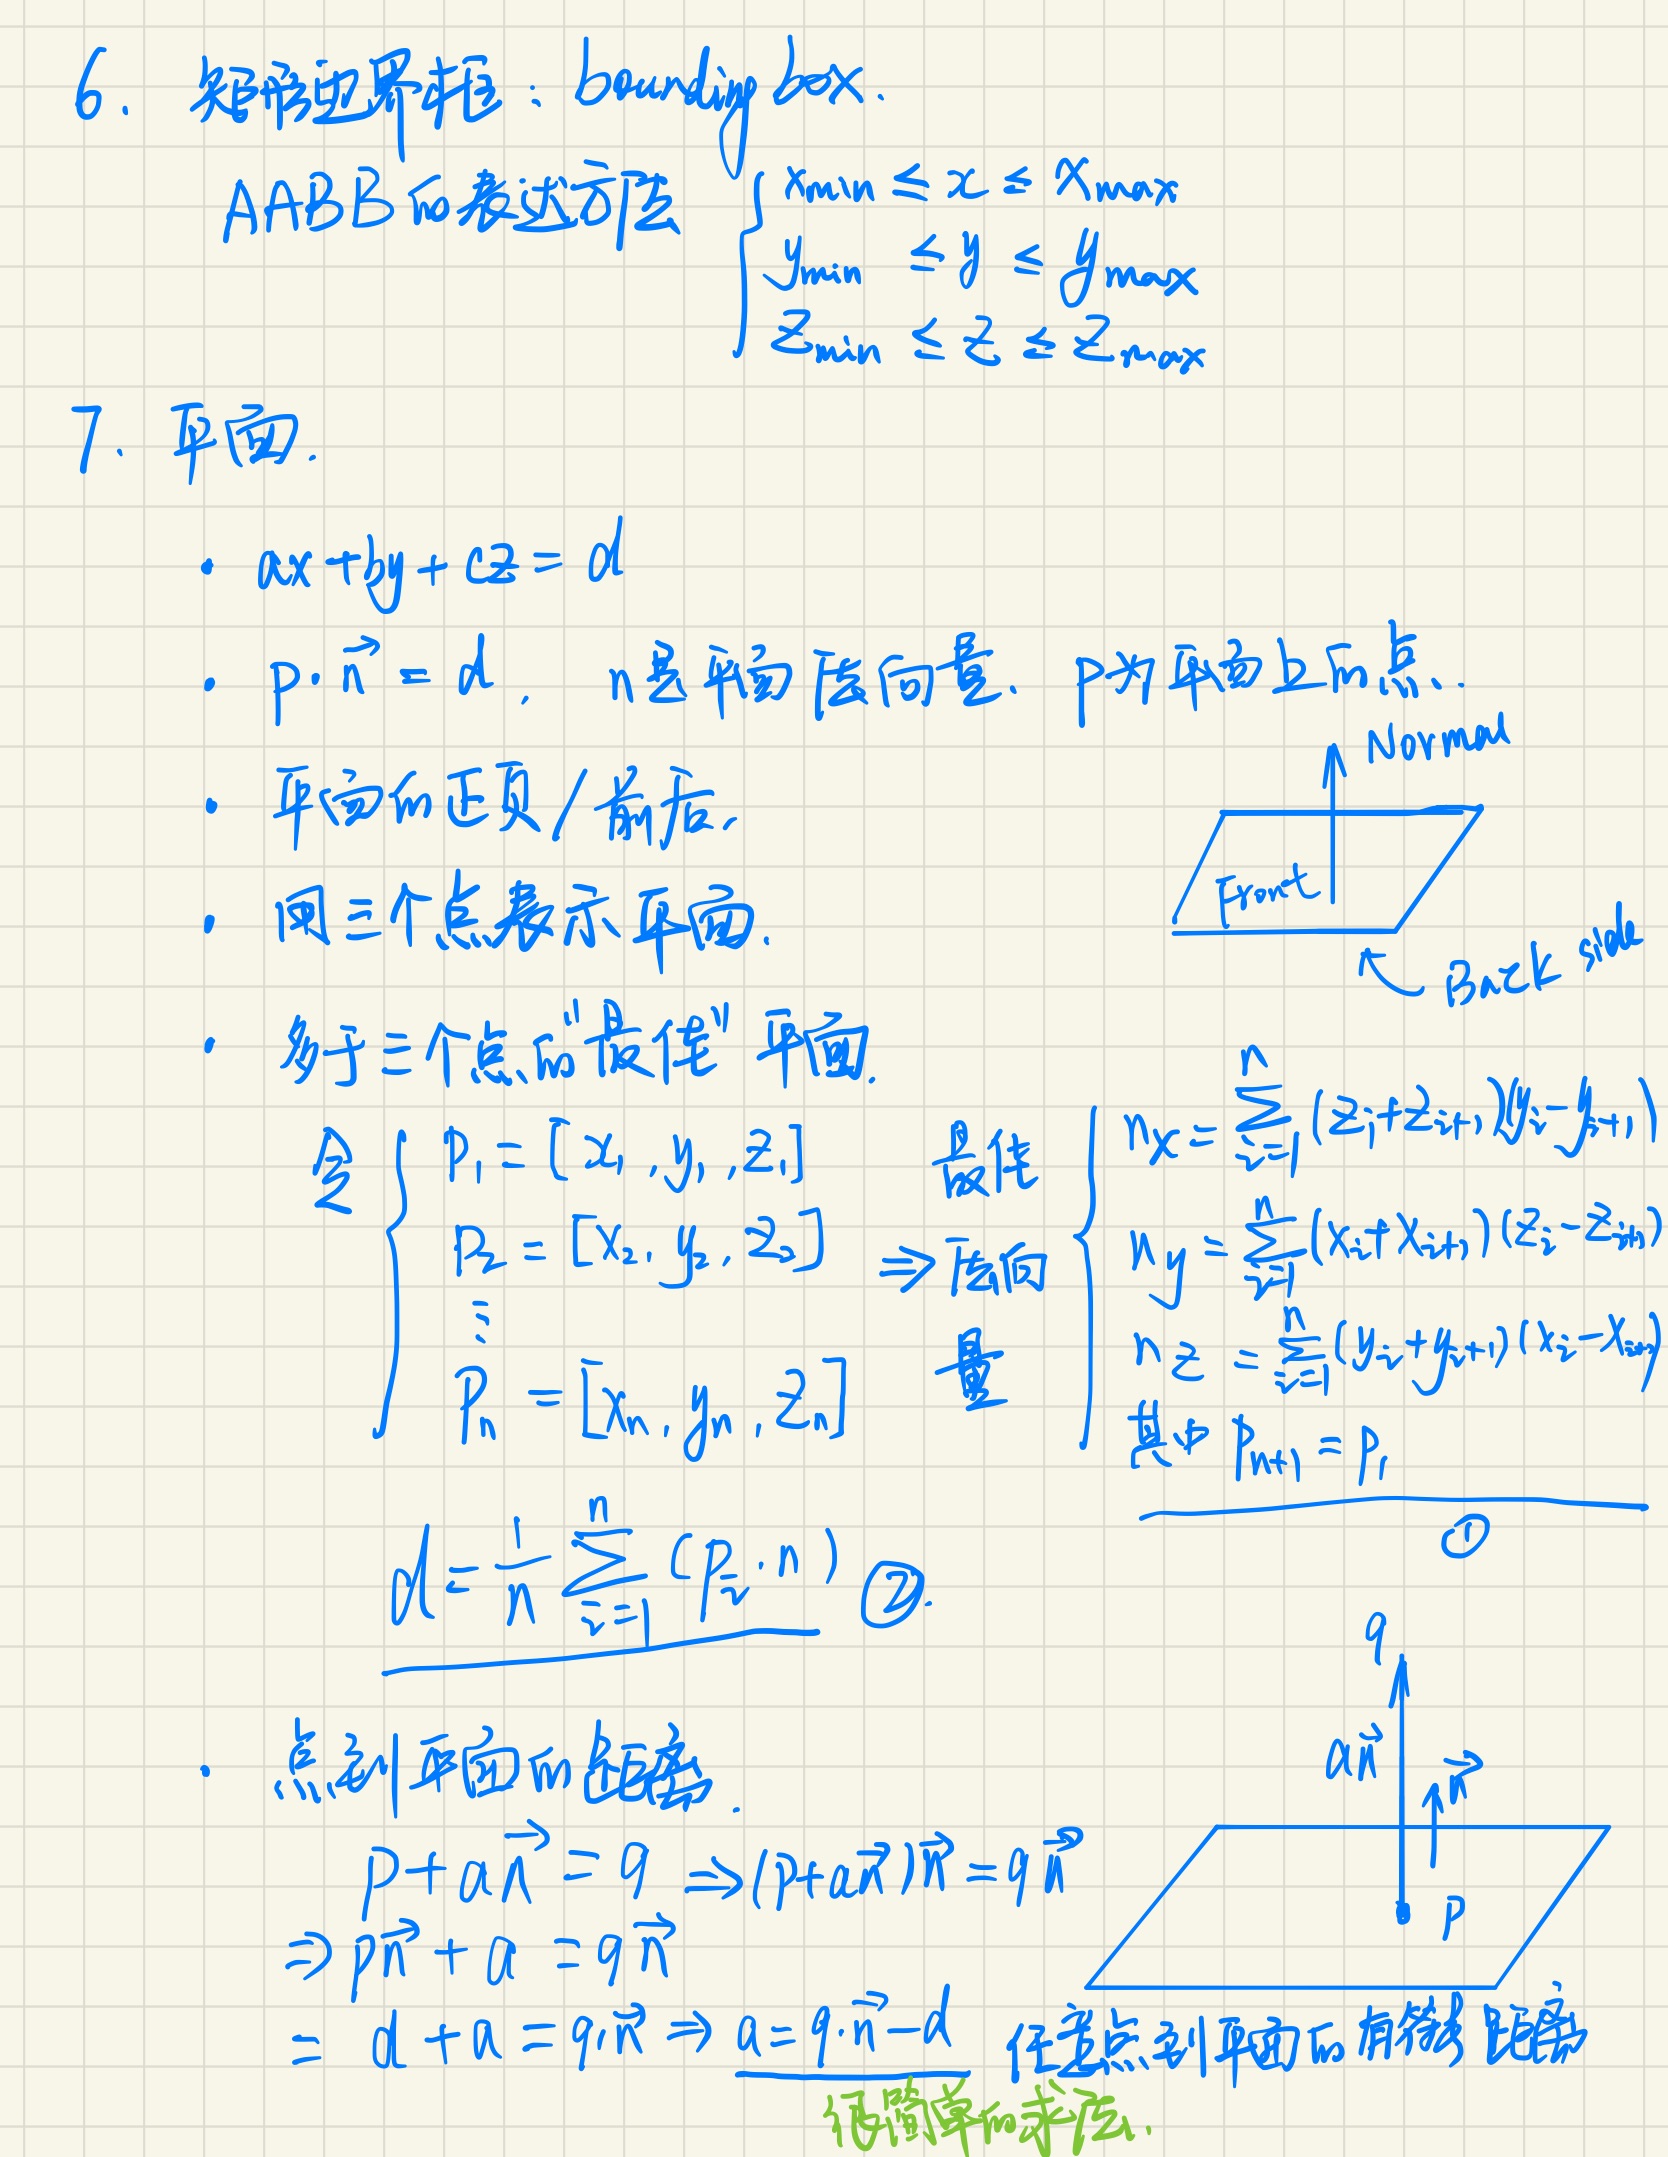 6. 矩形边界框：bounding box.
AABB的表达方法 { x_min ≤ x ≤ x_max
y_min ≤ y ≤ y_max
z_min ≤ z ≤ z_max
7. 平面.
· ax+by+cz=d
· p·n⃗ = d, n是平面法向量. p为平面上的点.
Normal
· 平面的正负/前后.
Front
· 用三个点表示平面.
Back side
· 多于三个点的"最佳"平面.
令 { P₁ = [x₁, y₁, z₁]
P₂ = [x₂, y₂, z₂]
⋮
Pₙ = [xₙ, yₙ, zₙ]
⇒ 最佳法向量 { nx = ∑_{i=1}^{n} (z_i+z_{i+1})(y_i−y_{i+1})
ny = ∑_{i=1}^{n} (x_i+x_{i+1})(z_i−z_{i+1})
nz = ∑_{i=1}^{n} (y_i+y_{i+1})(x_i−x_{i+1})
其中 P_{n+1} = P₁
①
d = 1/n ∑_{i=1}^{n} (P_i·n) ②.
q
· 点到平面的距离.
an⃗
n⃗
p+an⃗ = q ⇒ (p+an⃗)n⃗ = qn⃗
P
⇒ pn⃗ + a = qn⃗
= d + a = q·n⃗ ⇒ a = q·n⃗ − d 任意点到平面的有符号距离
很简单的求法.